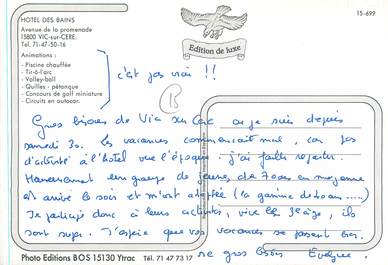 HOTEL DES BAINS
Avenue de la promenade
15800 VIC-sur-CERE.
Tel. 71-47-50-16
Animations :
- Piscine chauffée
- Tir-à-l'arc
- Volley-ball
- Quilles - pétanque
- Concours de golf miniature
- Circuits en autocar.
15-699
Edition de luxe
c'est pas vrai !!
B
Gros bisous de Vic sur Cère où je suis depuis
samedi 30. Les vacances commençait mal, car pas
d'activité à l'hôtel vue l'époque. j'ai failli repartir.
Heureusement un groupe de jeunes de 70 ans en moyenne
est arrivé le soir et m'ont adoptée (la gamine de 40 ans.....)
Je participe donc à leurs activités, vive le 3e âge, ils
sont super. J'espère que vos vacances se passent bien.
gros bisous Evelyne.
Photo Editions BOS 15130 Ytrac Tél. 71 47 73 17